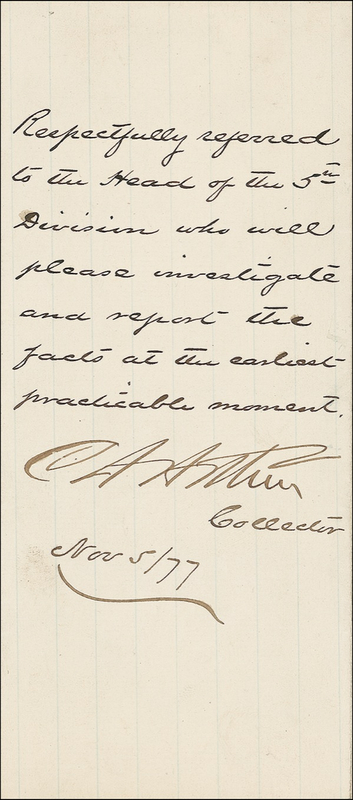 Respectfully referred
to the Head of the 5th
Division who will
please investigate
and report the
facts at the earliest
practicable moment.
C A Arthur
Collector
Nov 5/77